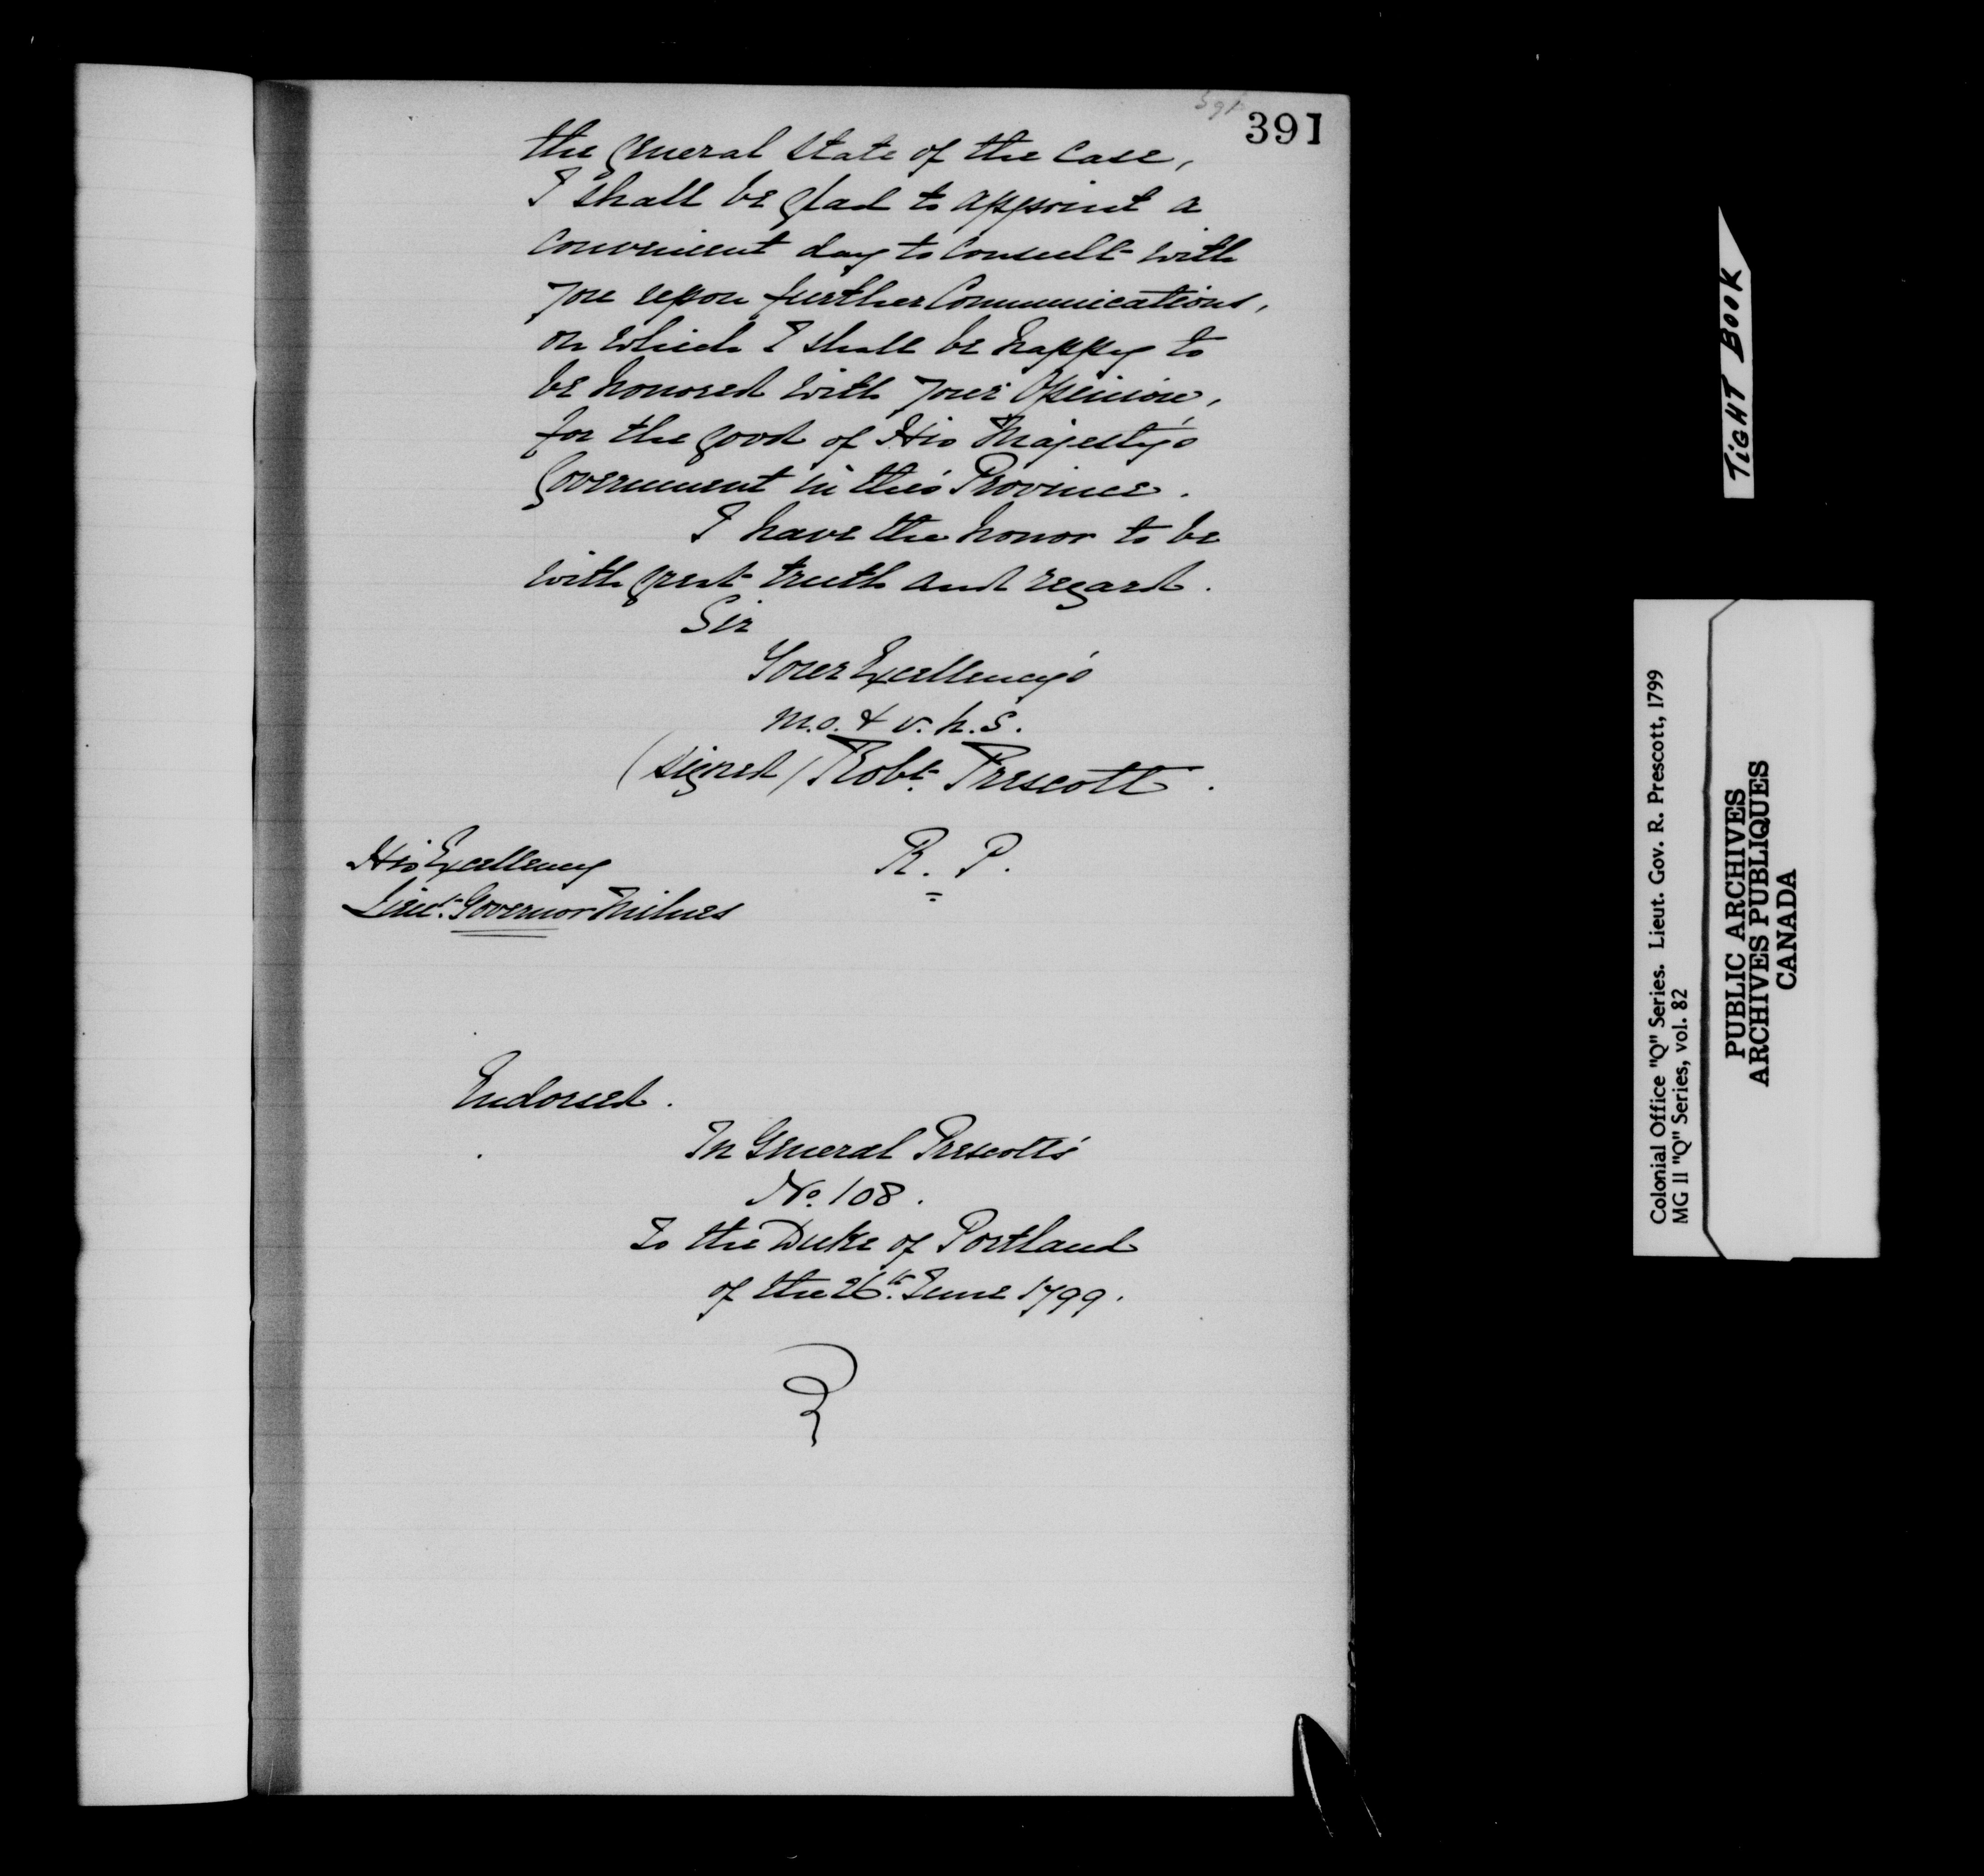 391
391
the general State of the Case,
I shall be glad to appoint a
convenient day to Consult with
you upon further Communications,
on which I shall be happy to
be honored with your Opinion,
for the good of His Majesty's
Government in this Province.
I have the honor to be
with great truth and regard.
Sir
Your Excellency's
m.o. & v. h. S.
(signed) Robt. Prescott.
R. P.
His Excellency
Lieut. Governor Milnes
Endorsed.
In General Prescott's
No. 108.
To the Duke of Portland
of the 26th. June 1799.
TIGHT BOOK
Colonial Office "Q" Series. Lieut. Gov. R. Prescott, 1799
MG 11 "Q" Series, vol. 82
PUBLIC ARCHIVES
ARCHIVES PUBLIQUES
CANADA